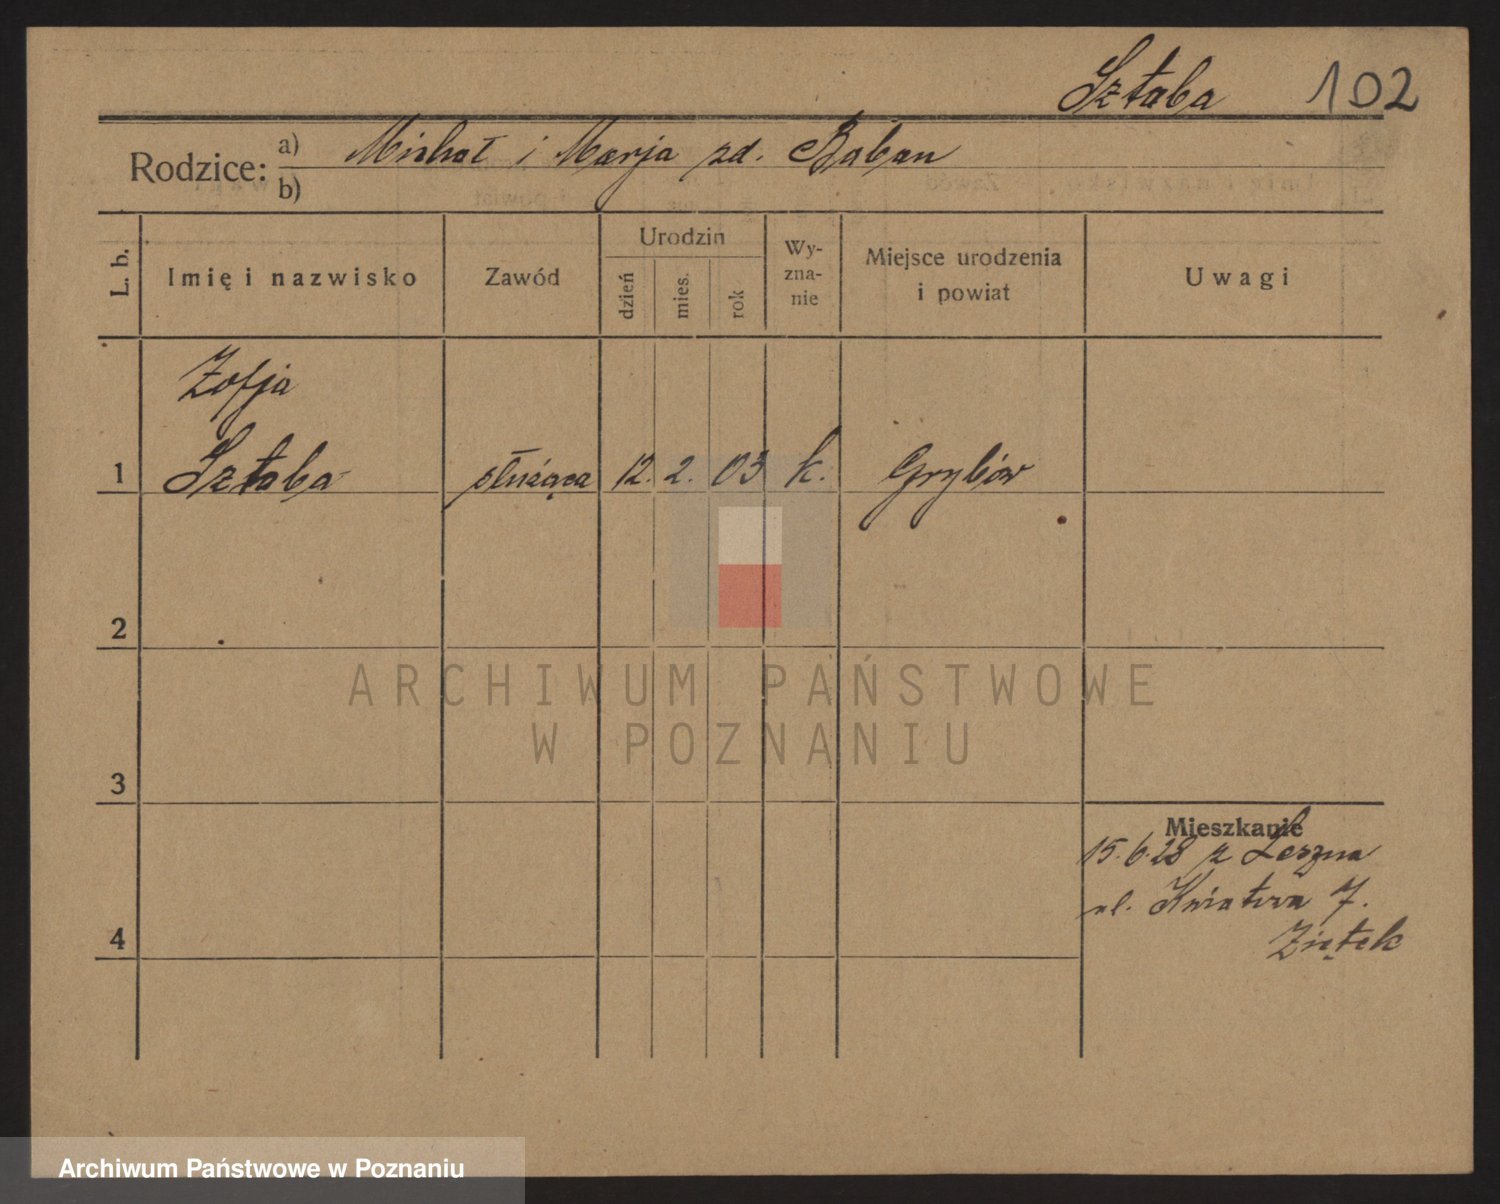 Sztaba 102
Rodzice: a) Michał i Marja zd. Baban
b)
L. b.
Imię i nazwisko
Zawód
Urodzin
dzień
mies.
rok
Wy-
zna-
nie
Miejsce urodzenia
i powiat
Uwagi
Zofja
1 Sztaba służąca 12. 2. 03 k. Grybów
2
ARCHIWUM PAŃSTWOWE
W POZNANIU
3
Mieszkanie
15.6.28 z Leszna
ul. Kwiatowa 7.
4
Ziętek
Archiwum Państwowe w Poznaniu